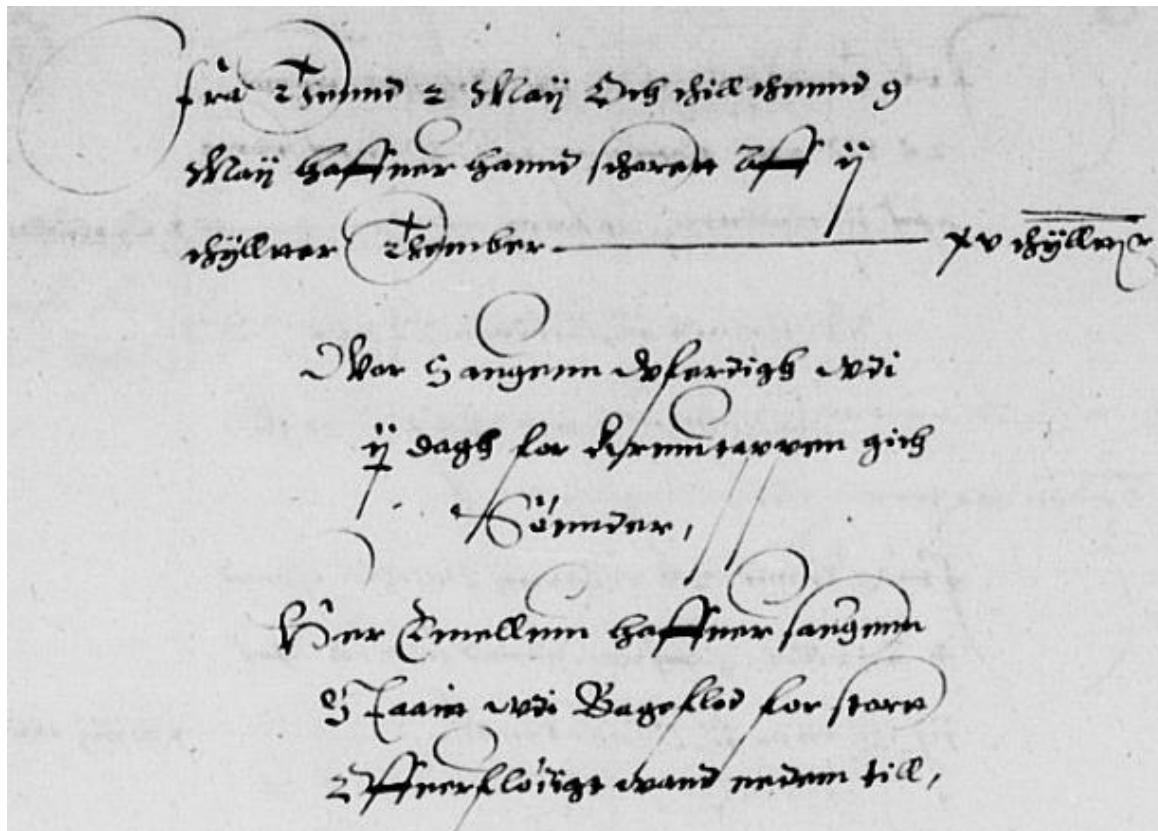 Fra Thennd 2 Maij Och thill thennd 9
Maij haffuer hannd schoren Aff ij
thÿllter Thømber xv thÿllter
War Saugenn wferdigh wdi
ij dagh for Krumtappen gich
Sönnder,
Her Emellum haffuer saugenn
Staait wdi Bageflod for stort
Offuerflödigt wand nedenn till,